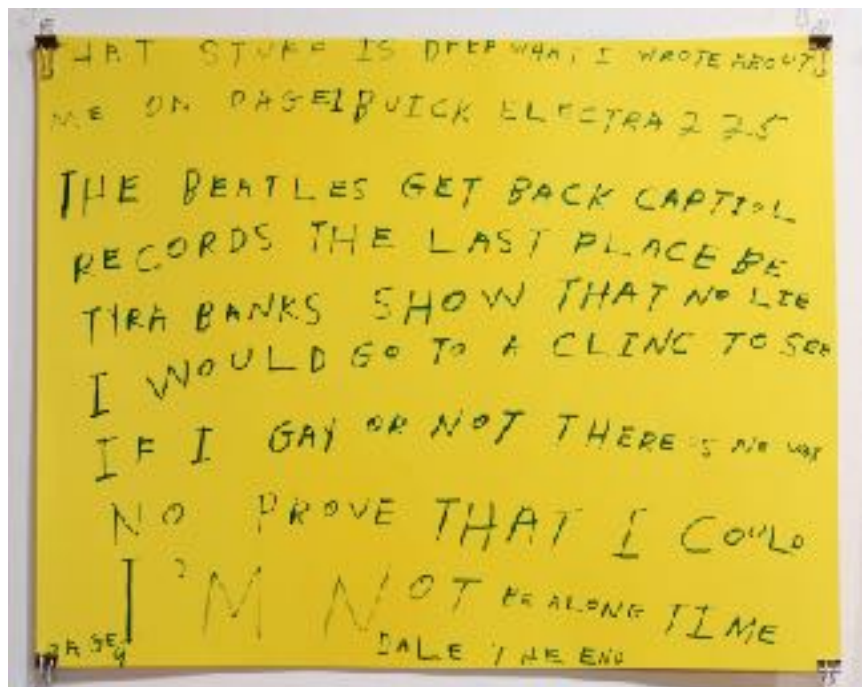 THAT STUFF IS DEEP WHAT I WROTE ABOUT
ME ON PAGE1 BUICK ELECTRA 225
THE BEATLES GET BACK CAPTIOL
RECORDS THE LAST PLACE BE
TYRA BANKS SHOW THAT NO LIE
I WOULD GO TO A CLINC TO SEE
IF I GAY OR NOT THERE IS NO WAY
NO PROVE THAT I COULD
I'M NOT BE ALONG TIME
PAGE 9 DALE THE END